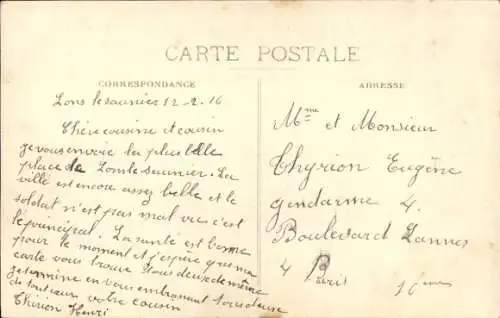 CARTE POSTALE
CORRESPONDANCE
Lons le saunier 12-2-16
Chère cousine et cousin
je vous envoie la plus belle
place de Lons le Saunier. La
ville est encore assez belle et le
soldat n'est pas mal vu c'est
le principal. La santé est bonne
pour le moment et j'espère que ma
carte vous trouve tous deux de même
je termine en vous embrassant tous deux
de tout cœur votre cousin
Thirion Henri
ADRESSE
Mme et Monsieur
Thyrion Eugène
gendarme 4.
Boulevard Lannes
4 Paris 16eme